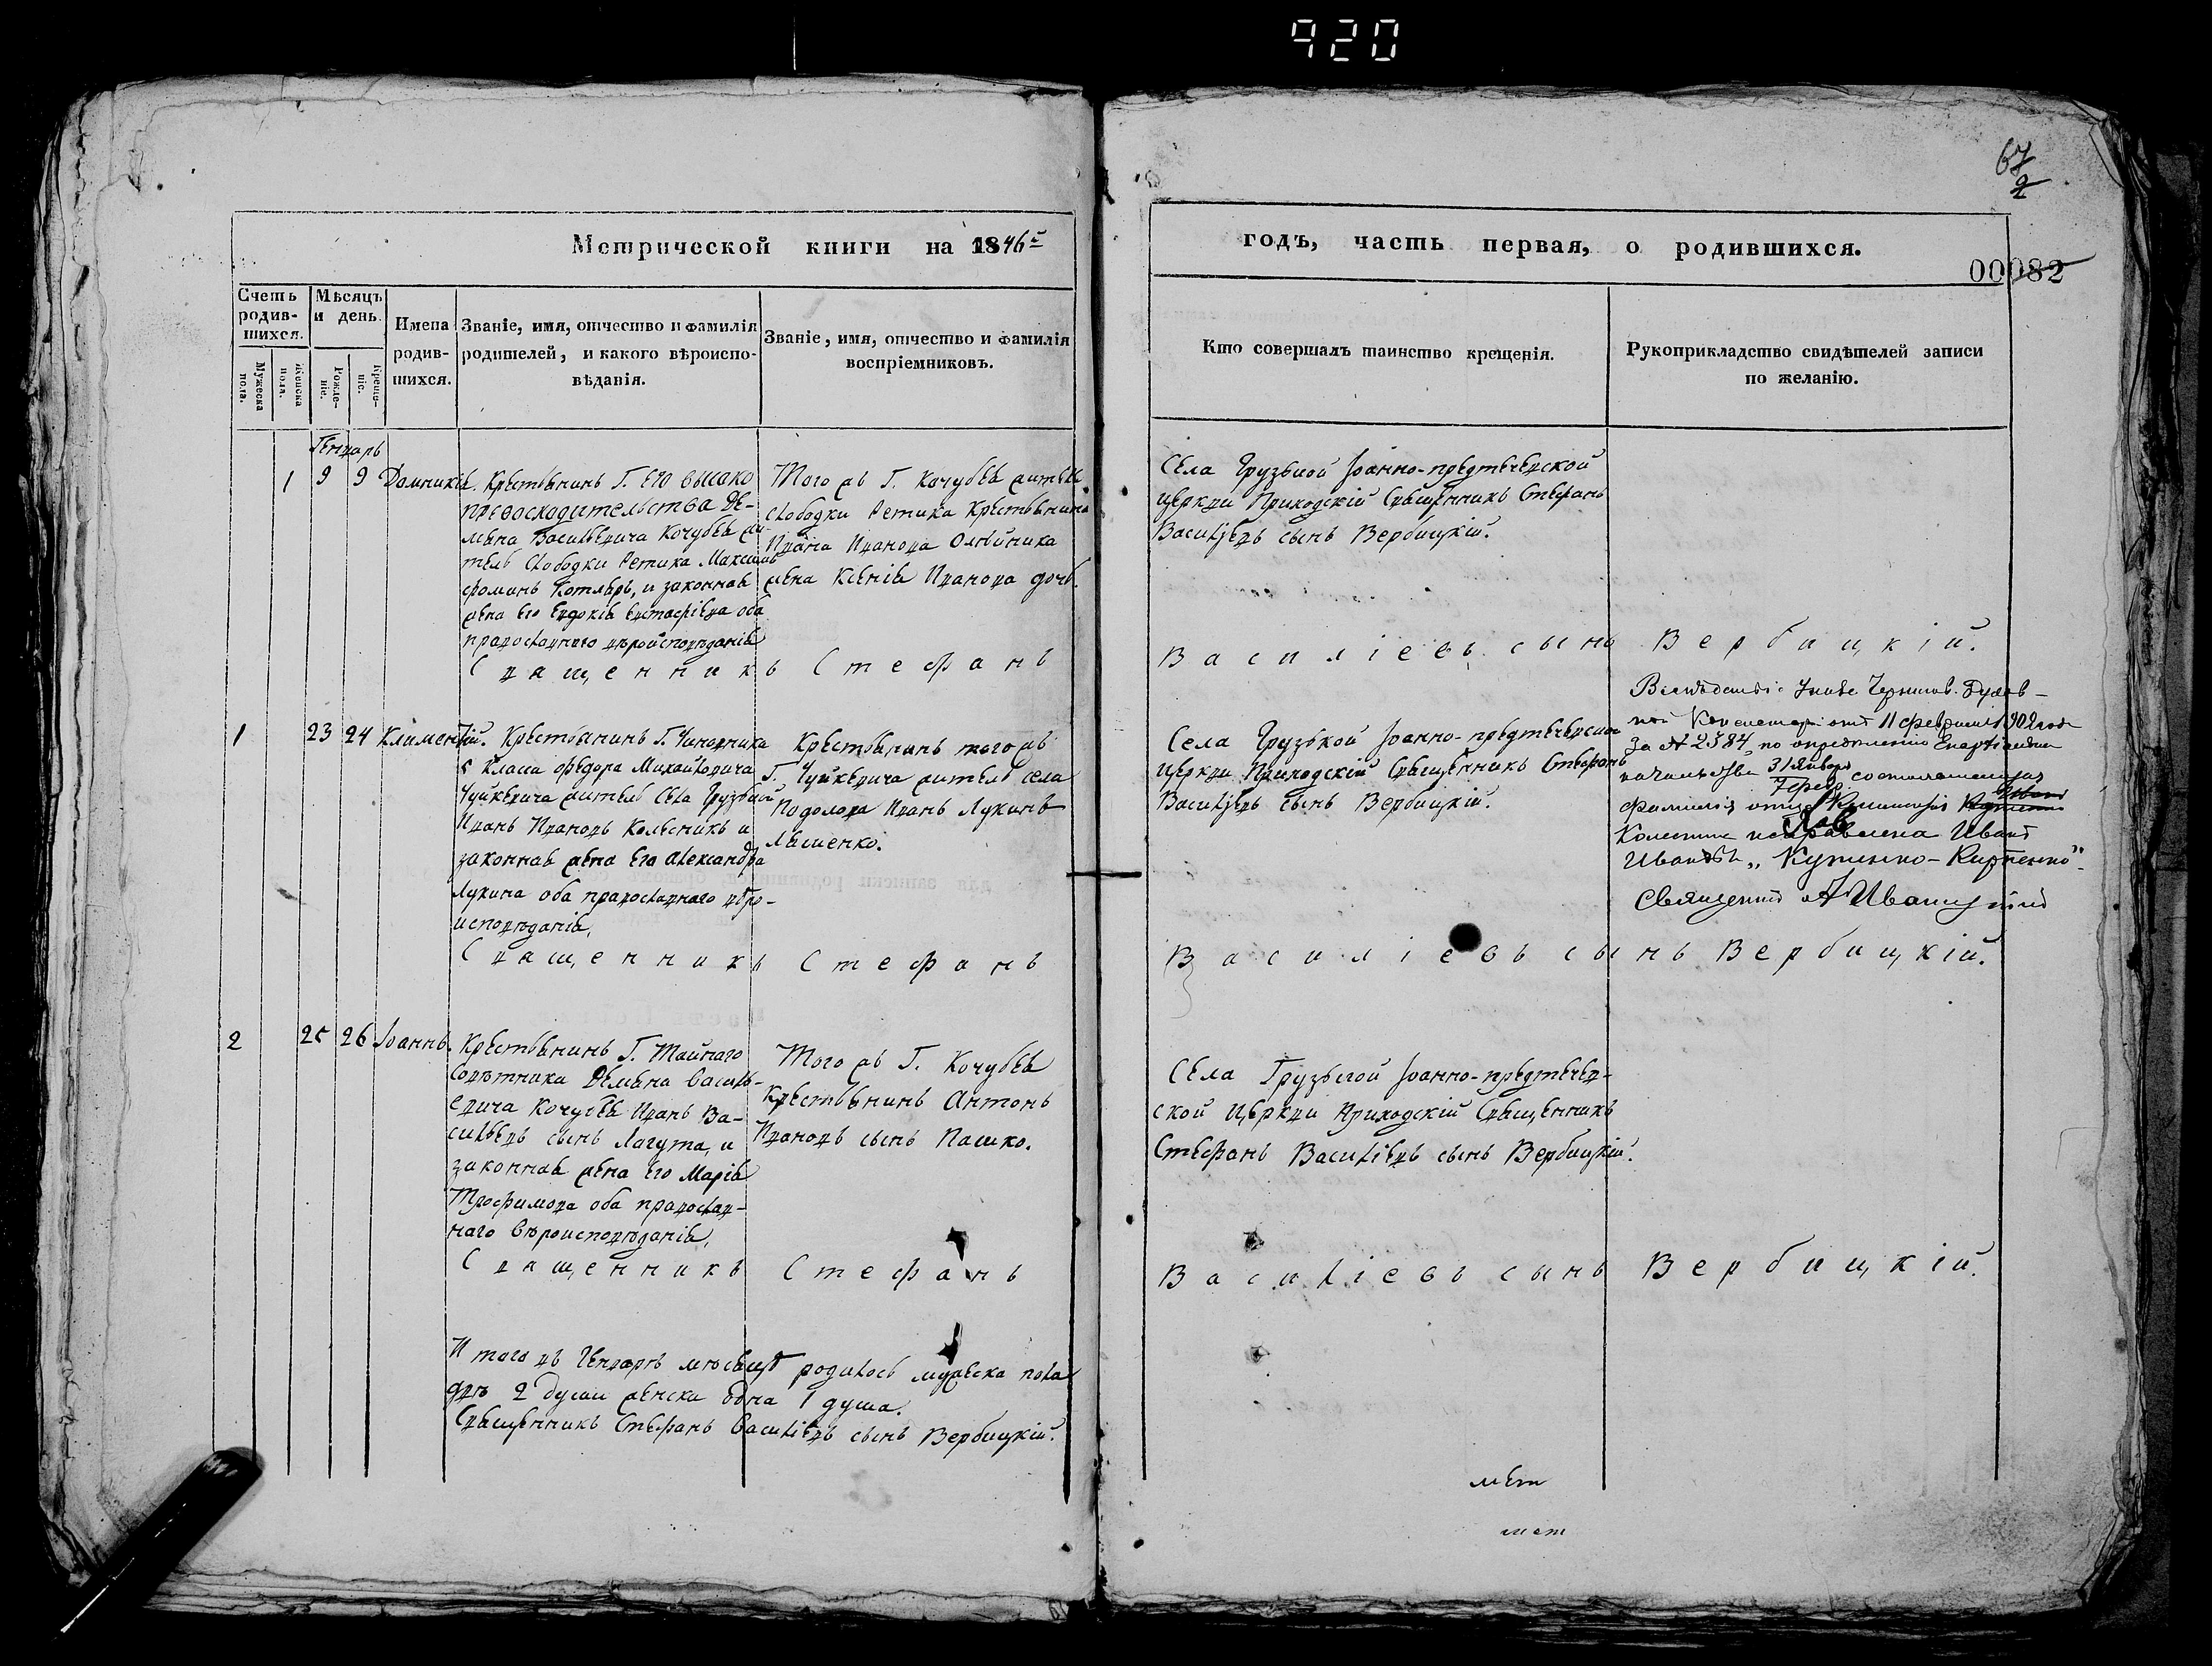 920
67
2
Метрической книги на 1846г
годъ, часть первая, о родившихся.
00082
Счетъ родив-шихся.
Мужеска пола.
Женска пола.
Мѣсяцъ и день.
Рожде-ніе.
Креще-ніе.
Имена родив-шихся.
Званіе, имя, отчество и фамилія
родителей, и какого вѣроиспо-
вѣданія.
Званіе, имя, отчество и фамилія
воспріемниковъ.
Кто совершалъ таинство крещенія.
Рукоприкладство свидѣтелей записи
по желанію.
Генварь
1 9 9 Домникія.
Крестьянинъ Г. Его высоко
превосходительства Де-
мьяна Васильевича Кочубея жи-
тель слободки Ретика Максимъ
Фоминъ Котляръ, и законная
жена его Евдокія Евстафіева оба
православнаго вѣроисповѣданія
Того жъ Г. Кочубея житель
слободки Ретика Крестьянина
Ивана Иванова Олейника
жена Ксенія Иванова дочь.
Села Грузской Іоанно-предтечевской
церкви Приходскій Священникъ Стефанъ
Василіевъ сынъ Вербицкій.
Священникъ Стефанъ Василіевъ сынъ Вербицкій.
1 23 24 Климентій.
Крестьянинъ Г. Чиновника
5 класса Федора Михайловича
Чуйкевича житель села Грузской
Иванъ Ивановъ Колесникъ и
законная жена его Александра
Лукина оба православнаго вѣро-
исповѣданія,
Крестьянинъ того жъ
Г. Чуйкевича житель села
Подолова Иванъ Лукинъ
Ляшенко.
Села Грузской Іоанно-предтечевской
церкви Приходскій Священникъ Стефанъ
Василіевъ сынъ Вербицкій.
Вслѣдствіе Указа Чернигов. Духов-
ной Консисторіи отъ 11 февраля 1902 года
за № 2384, по опредѣленію Епархіальнаго
начальства 31 Января
7 февр. состоявшемуся
фамилія отца Климентія
Колесника исправлена Иванъ
Ивановъ „Кущенко-Кирпенко".
Священникъ А Иваницкій
Священникъ Стефанъ Василіевъ сынъ Вербицкій.
2 25 26 Іоаннъ.
Крестьянинъ Г. Тайнаго
Совѣтника Демьяна Василь-
евича Кочубея Иванъ Ва-
сильевъ сынъ Лагута, и
законная жена его Марія
Трофимова оба православ-
наго вѣроисповѣданія,
Того жъ Г. Кочубея
Крестьянинъ Антонъ
Ивановъ сынъ Пашко.
Села Грузской Іоанно-предтечев-
ской церкви Приходскій Священникъ
Стефанъ Василіевъ сынъ Вербицкій.
Священникъ Стефанъ Василіевъ сынъ Вербицкій.
И того въ Генварѣ мѣсяцѣ родилось мужеска пола
двѣ 2 души женска одна 1 душа.
Священникъ Стефанъ Василіевъ сынъ Вербицкій.
мет
мет